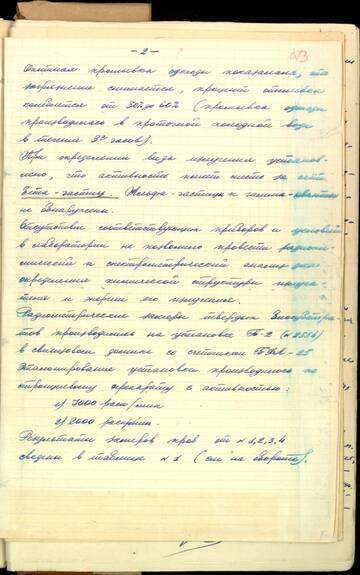 - 2 -
373
Опытная промывка одежды показала, что
загрязнение снимается, процент отмывки
колеблется от 30% до 60% (промывка одежды
производилась в проточной холодной воде
в течение 3х часов).
При определении вида излучения установ-
лено, что активность имеет место за счет
бета-частиц. Альфа-частиц и гамма-квантов
не обнаружено.
Отсутствие соответствующих приборов и условий
в лаборатории не позволило провести радиохи-
мический и спектрометрический анализ для
определения химической структуры
и энергии его излучения.
Радиометрические замеры твердых биосубстра-
тов производились на установке Б-2 (№2554)
в свинцовом домике со счетчиком
Эталонирование установки производилось по
стронциевому препарату с активностью:
1) 7000 расп/мин
2) 2000 расп/мин.
Результаты замеров проб от №1,2,3,4
сведены в таблицу №1 (см. на обороте).